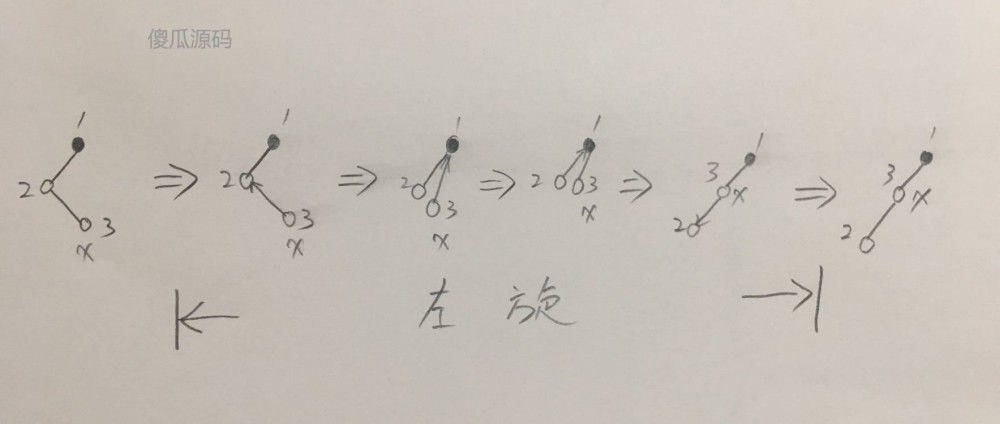 傻瓜源码
1 1 1 1 1 1
2 2 2 2 3 X 3 X
3 X 3 X 3 X 3 X 2 2
左旋